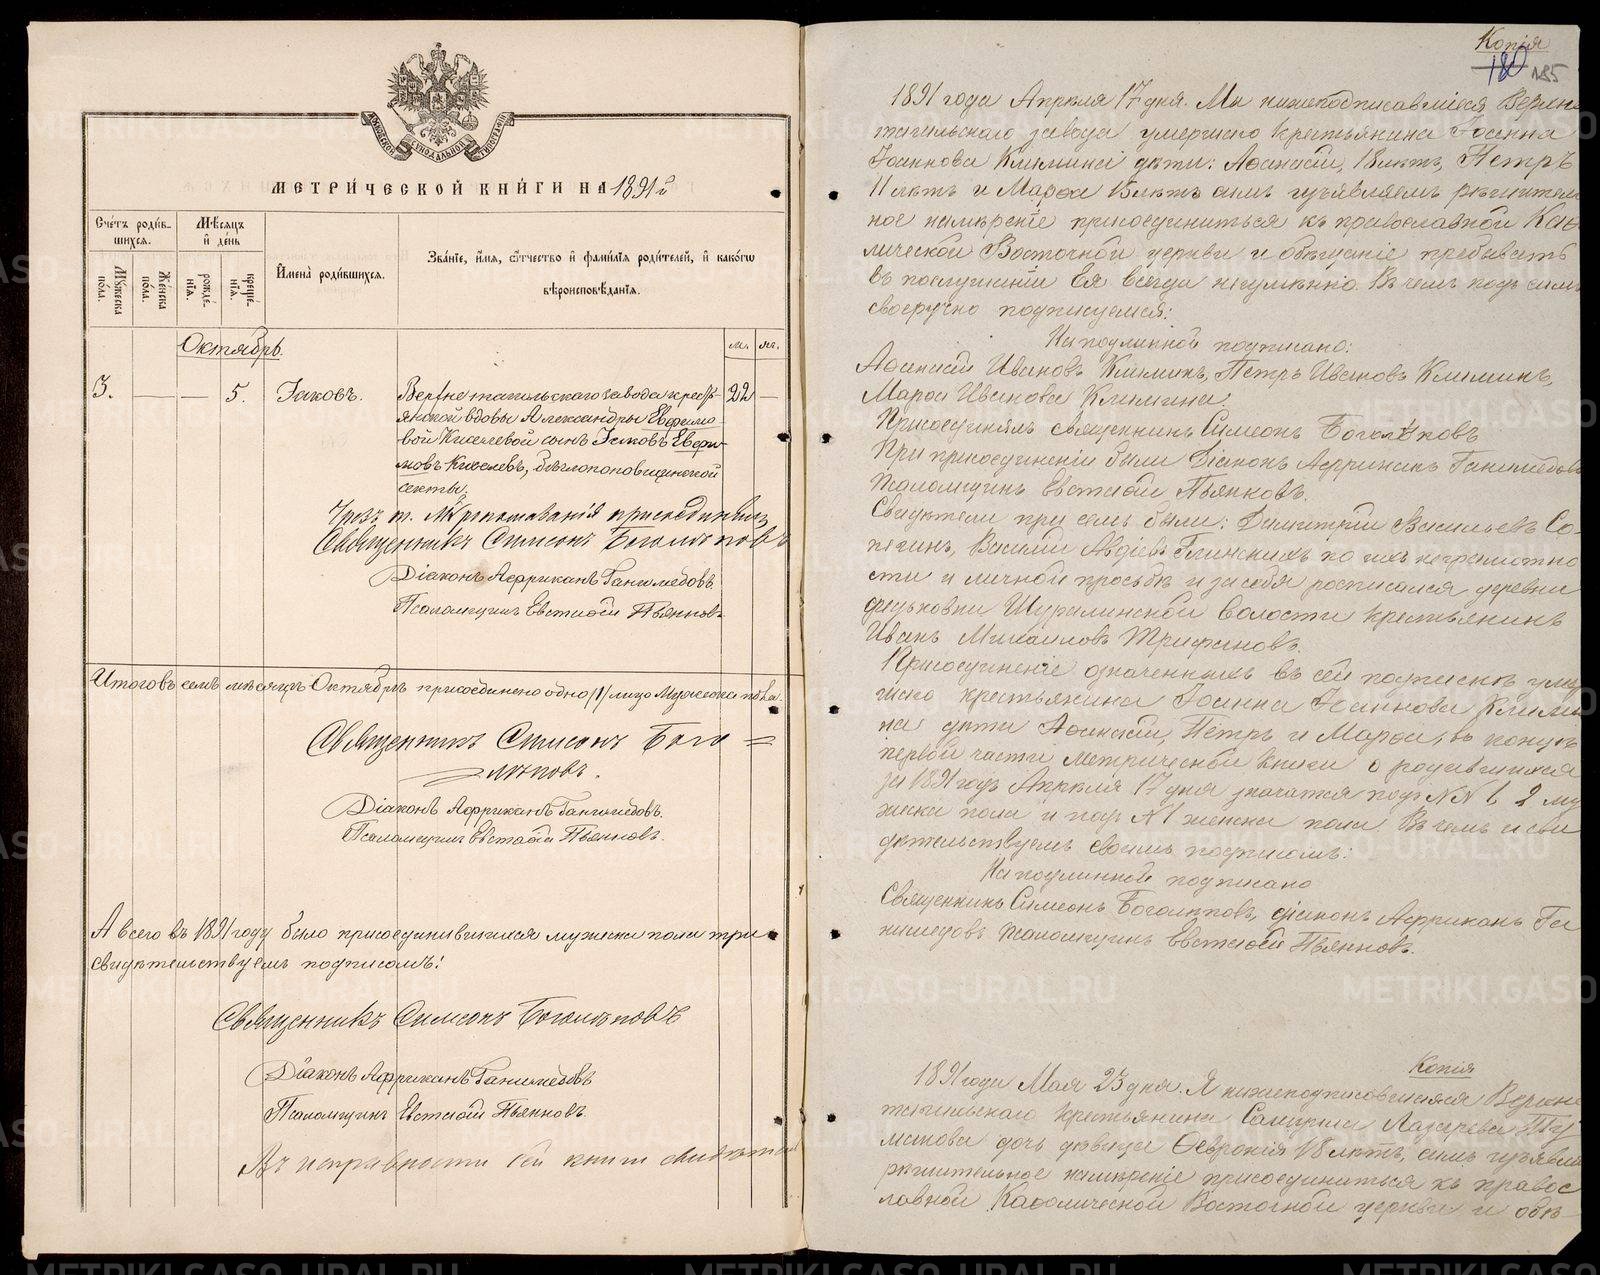 МОСКОВСКОЙ СѴНОДАЛЬНОЙ ТИПОГРАФІИ
МЕТРИ́ЧЕСКОЙ КНИ́ГИ НА 1891й
Сче́тъ роди́в-
шихсѧ.
Му́жеска по́ла.
Же́нска по́ла.
Мѣ́сѧцъ
и҆ де́нь
рожде́-
нїѧ.
креще́-
нїѧ.
И҆мена̀ роди́вшихсѧ.
Зва́нїе, и҆́мѧ, ѻ҆́тчество и҆ фами́лїѧ роди́телей, и҆ како́гѡ
вѣроисповѣ́данїѧ.
Октябрь.
м. ж.
3. — — 5. Іаковъ. Верхнетагильскаго завода кресть- 22 —
янской вдовы Александры Евфимо-
вой Киселевой сынъ Іаковъ Евфи-
мовъ Киселевъ, бѣглопоповщинской
секты.
Чрезъ т. Мѵропомазанія присоединилъ
Священникъ Симеонъ Боголѣповъ
Діаконъ Африканъ Ганимедовъ.
Псаломщикъ Евстафій Пьянковъ.
Итого въ семъ мѣсяцѣ Октябрѣ присоединено одно /1/ лицо мужеска пола.
Священникъ Симеонъ Бого =
лѣповъ.
Діаконъ Африканъ Ганимедовъ.
Псаломщикъ Евстафій Пьянковъ.
А всего въ 1891 году было присоединившихся мужеска пола три
свидѣтельствуемъ подписомъ:
Священникъ Симеонъ Боголѣповъ
Діаконъ Африканъ Ганимедовъ
Псаломщикъ Евстафій Пьянковъ.
Въ исправности сей книги свидѣтел
Копія
180 185
1891 года Апрѣля 17 дня. Мы нижеподписавшіеся Верхне
тагильскаго завода умершаго крестьянина Іоанна
Іоаннова Климина дѣти: Афанасій, 18 лѣтъ, Петръ
11 лѣтъ и Марфа 13 лѣтъ симъ изъявляемъ рѣшитель
ное намѣреніе присоединиться къ православной Каѳо
лической Восточной церкви и обѣщаніе пребывать
въ послушаніи Ея всегда неизмѣнно. Въ чемъ подъ симъ
своеручно подписуемся:
На подлинной подписано:
Афанасій Ивановъ Климинъ, Петръ Ивановъ Климинъ,
Марфа Иванова Климина.
Присоединялъ священникъ Симеонъ Боголѣповъ
При присоединеніи были Діаконъ Африканъ Ганимедовъ
Псаломщикъ Евстафій Пьянковъ.
Свидѣтели при семъ были: Димитрій Васильевъ Со-
пегинъ, Василій Авдіевъ Глинскихъ по ихъ неграмотно
сти и личной просьбѣ и за себя росписался деревни
Федьковки Шуралинской волости крестьянинъ
Иванъ Михаиловъ Трифановъ.
Присоединеніе означенныхъ въ сей подпискѣ умер
шаго крестьянина Іоанна Іоаннова Клими
на дѣти Афанасій, Петръ и Марфа, въ концѣ
первой части метрической книги о родившихся
за 1891 годъ Апрѣля 17 дня значатся подъ №№ 1, 2 му
жеска пола и подъ №1 женска пола. Въ чемъ и сви
дѣтельствуемъ своимъ подписомъ:
На подлинной подписано
Священникъ Симеонъ Боголѣповъ, діаконъ Африканъ Га
нимедовъ псаломщикъ Евстафій Пьянковъ.
Копія
1891 года Мая 23 дня. Я нижеподписавшаяся Верхне
тагильскаго крестьянина Лазарева
дочь дѣвица Февронія 18 лѣтъ, симъ изъявля
рѣшительное намѣреніе присоединиться къ правос
лавной Каѳолической Восточной церкви и обѣ
METRIKI.GASO-URAL.RU